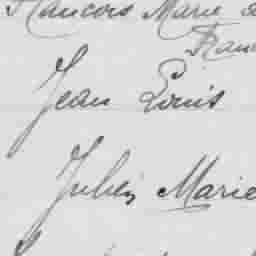 Francois Marie
Jean Louis
Julien Marie